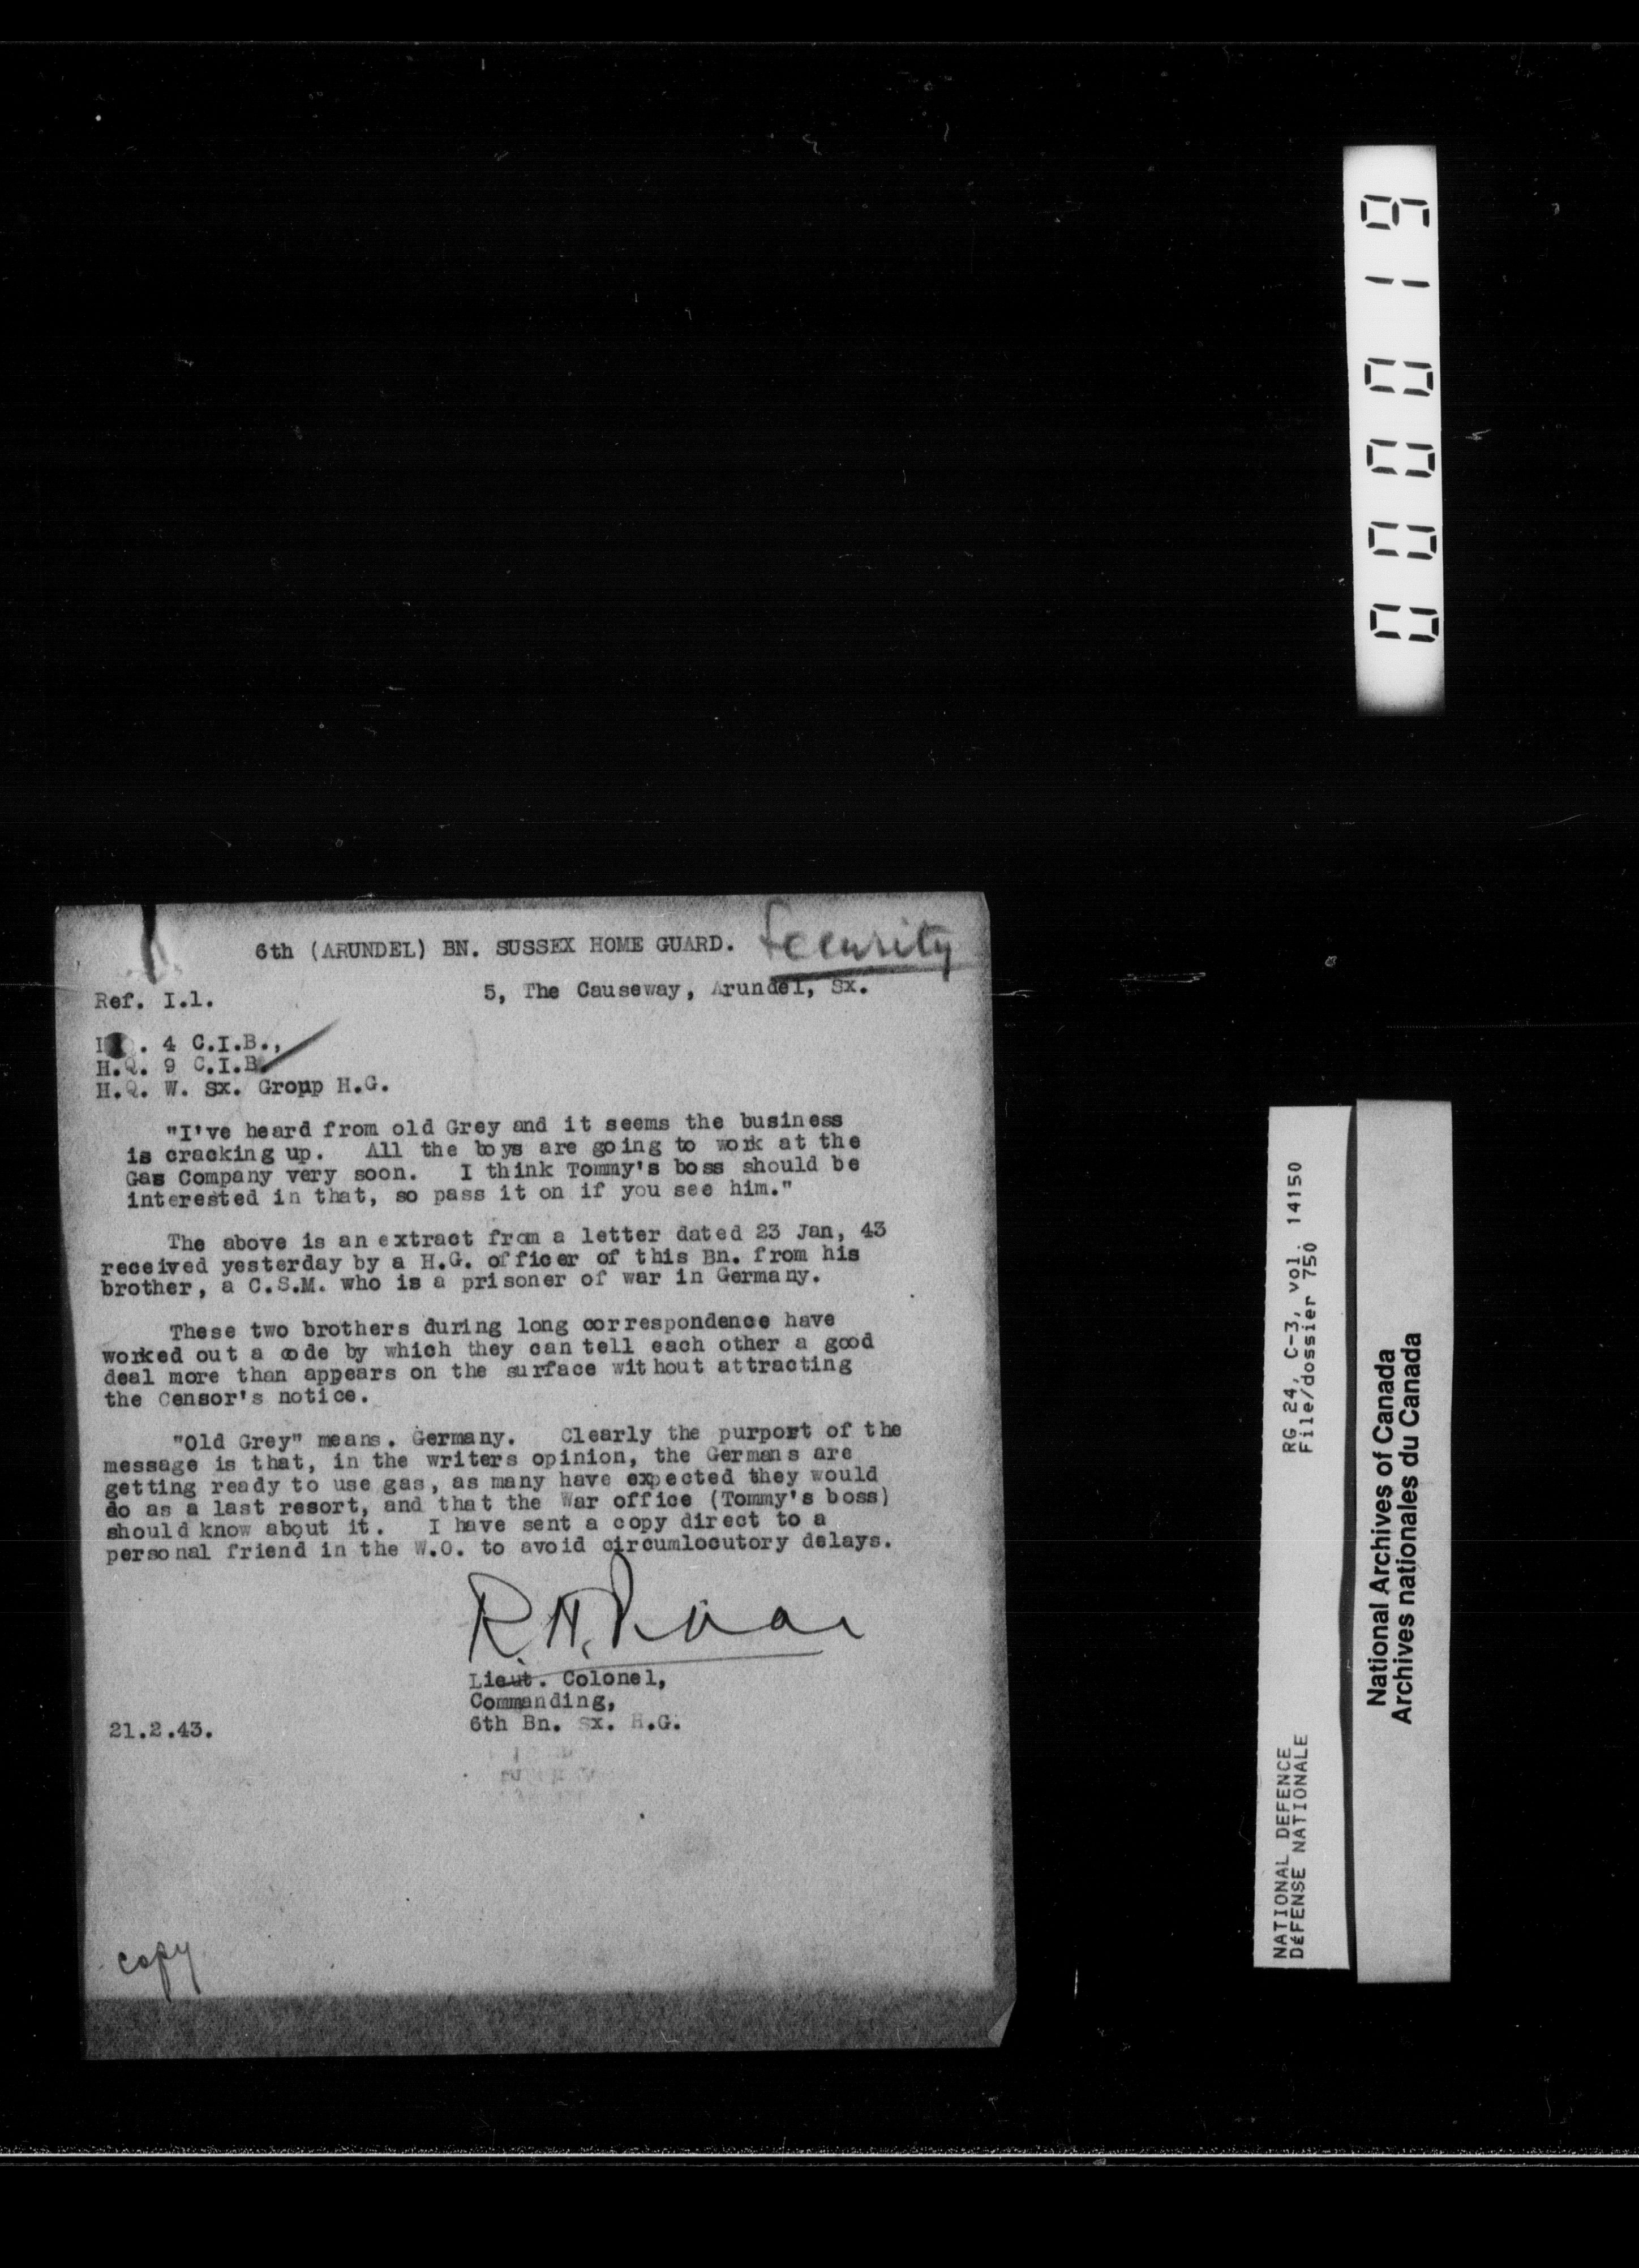 000019
6th (ARUNDEL) BN. SUSSEX HOME GUARD. Security
Ref. I.1. 5, The Causeway, Arundel, Sx.
4 C.I.B.,
H.Q. 9 C.I.B.
H.Q. W. Sx. Group H.G.
"I've heard from old Grey and it seems the business
is cracking up. All the boys are going to work at the
Gas Company very soon. I think Tommy's boss should be
interested in that, so pass it on if you see him."
The above is an extract from a letter dated 23 Jan, 43
received yesterday by a H.G. officer of this Bn. from his
brother, a C.S.M. who is a prisoner of war in Germany.
These two brothers during long correspondence have
worked out a code by which they can tell each other a good
deal more than appears on the surface without attracting
the Censor's notice.
"Old Grey" means. Germany. Clearly the purport of the
message is that, in the writers opinion, the Germans are
getting ready to use gas, as many have expected they would
do as a last resort, and that the War office (Tommy's boss)
should know about it. I have sent a copy direct to a
personal friend in the W.O. to avoid circumlocutory delays.
Lieut. Colonel,
Commanding,
21.2.43. 6th Bn. Sx. H.G.
copy
NATIONAL DEFENCE RG 24, C-3, vol. 14150
DÉFENSE NATIONALE File/dossier 750
National Archives of Canada
Archives nationales du Canada